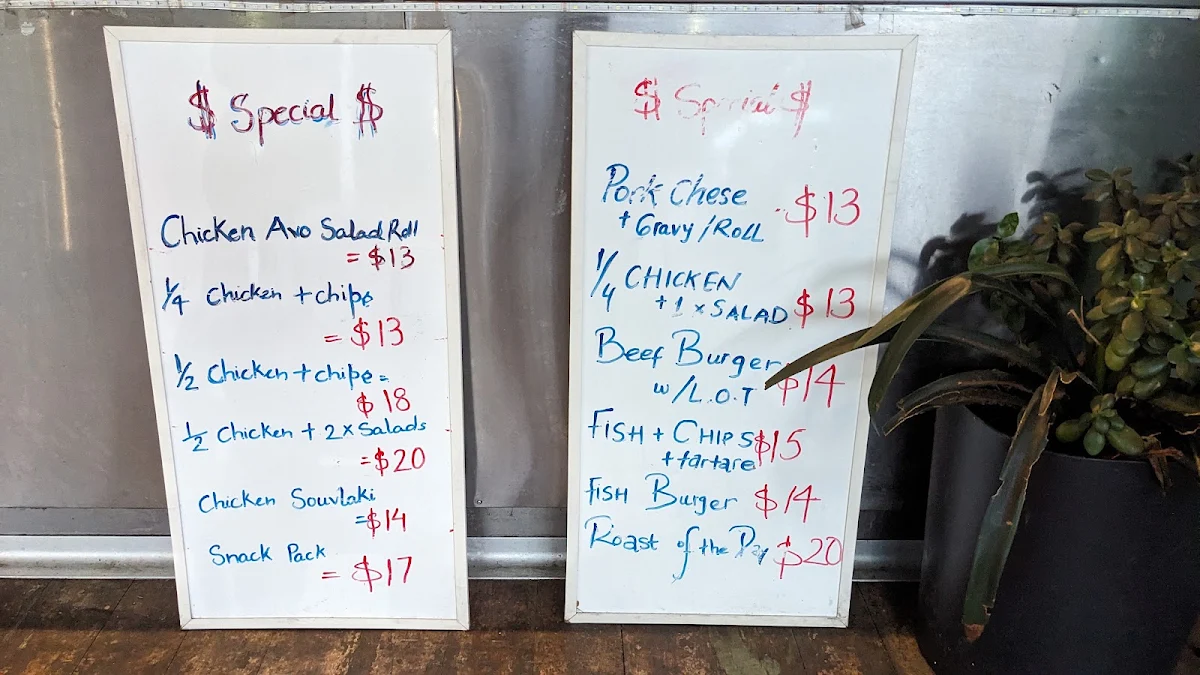 $ Special $
Chicken Avo Salad Roll
= $13
1/4 Chicken + chips
= $13
1/2 Chicken + chips =
$18
1/2 Chicken + 2x Salads
= $20
Chicken Souvlaki
= $14
Snack Pack
= $17
$ Special $
Pork Chese $13
+ Gravy / ROLL
1/4 CHICKEN
+ 1 x SALAD $13
Beef Burger
w/L.O.T $14
FISH + CHIPS $15
+ tartare
FISH Burger $14
Roast of the Day $20